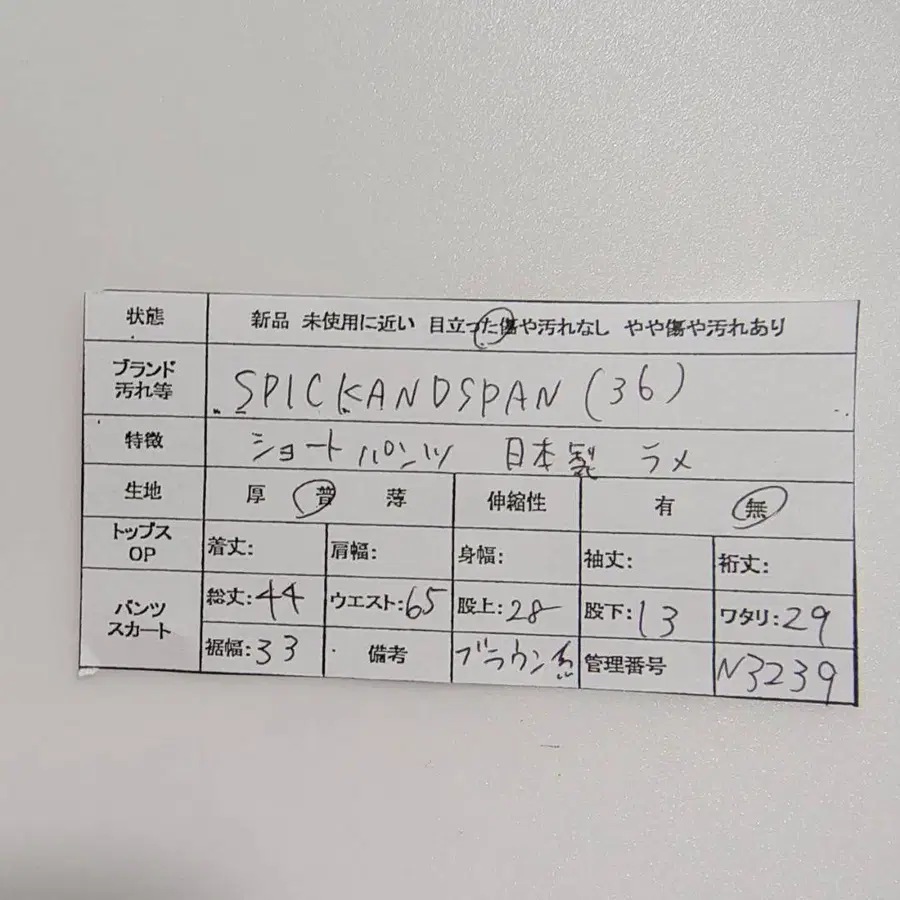 状態 新品 未使用に近い 目立った傷や汚れなし やや傷や汚れあり
ブランド
汚れ等 SPICKANDSPAN (36)
特徴 ショートパンツ 日本製 ラメ
生地 厚 普 薄 伸縮性 有 無
トップス
OP 着丈: 肩幅: 身幅: 袖丈: 裄丈:
パンツ
スカート 総丈:44 ウエスト:65 股上:28 股下:13 ワタリ:29
裾幅:33 備考 ブラウン色 管理番号 N3239